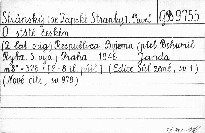 Stránský [ze Zapské Stranky], Pavel GD 9755
O státě českém
[Z lat. orig.] Respublica Bojema (přel. Bohumil
Ryba. 3. vyd.) Praha 1946 Janda
m8° - 328 - [2 - 8 il. příl.] (Edice Sůl země, sv. 1)
(Nové cíle, sv. 979)